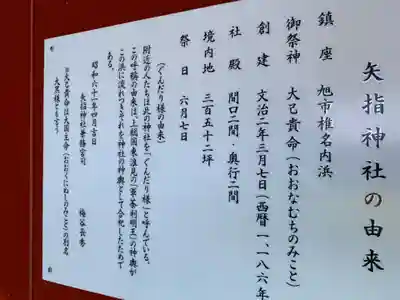 矢指神社の由来
鎮座 旭市椎名内浜
御祭神 大己貴命(おおなむちのみこと)
創建 文治二年三月七日(西暦一、一八六年
社殿 間口二間・奥行二間
境内地 三百五十二坪
祭日 六月七日
(ぐんだり様の由来)
附近の人たちは此の神社を「ぐんだり様」と呼んでいる。
この呼称の由来は、上総国東浪見の「軍荼利明王」の神輿が
この浜に流れつきそれを神社の神輿として合祀したためで
ある。
昭和六十二年四月吉日
矢指神社兼務宮司 梅谷長秀
※大己貴命は大国主命(おおくにぬしのみこと)の別名
大黒様とも言う。